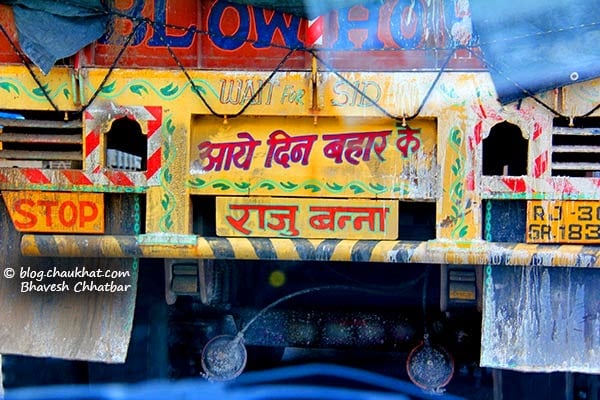 BLOW HO
WAIT For SID
आये दिन बहार के
राजु बन्ना
STOP
RJ-30
GR.183
© blog.chaukhat.com
Bhavesh Chhatbar